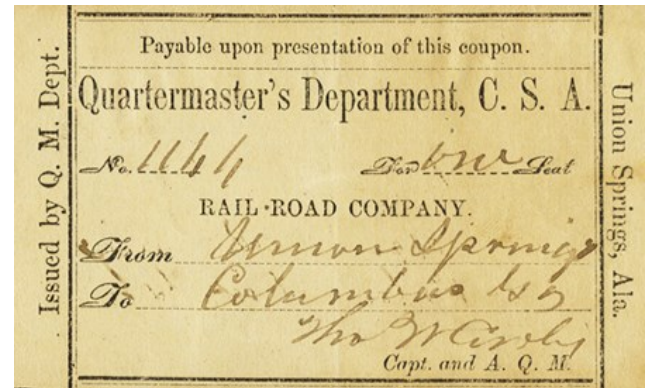 Payable upon presentation of this coupon.
Quartermaster's Department, C. S. A.
No. 1144 For one Seat
RAIL-ROAD COMPANY.
From Union Springs
To Columbus Ga
Tho W
Capt. and A. Q. M.
Issued by Q. M. Dept.
Union Springs, Ala.